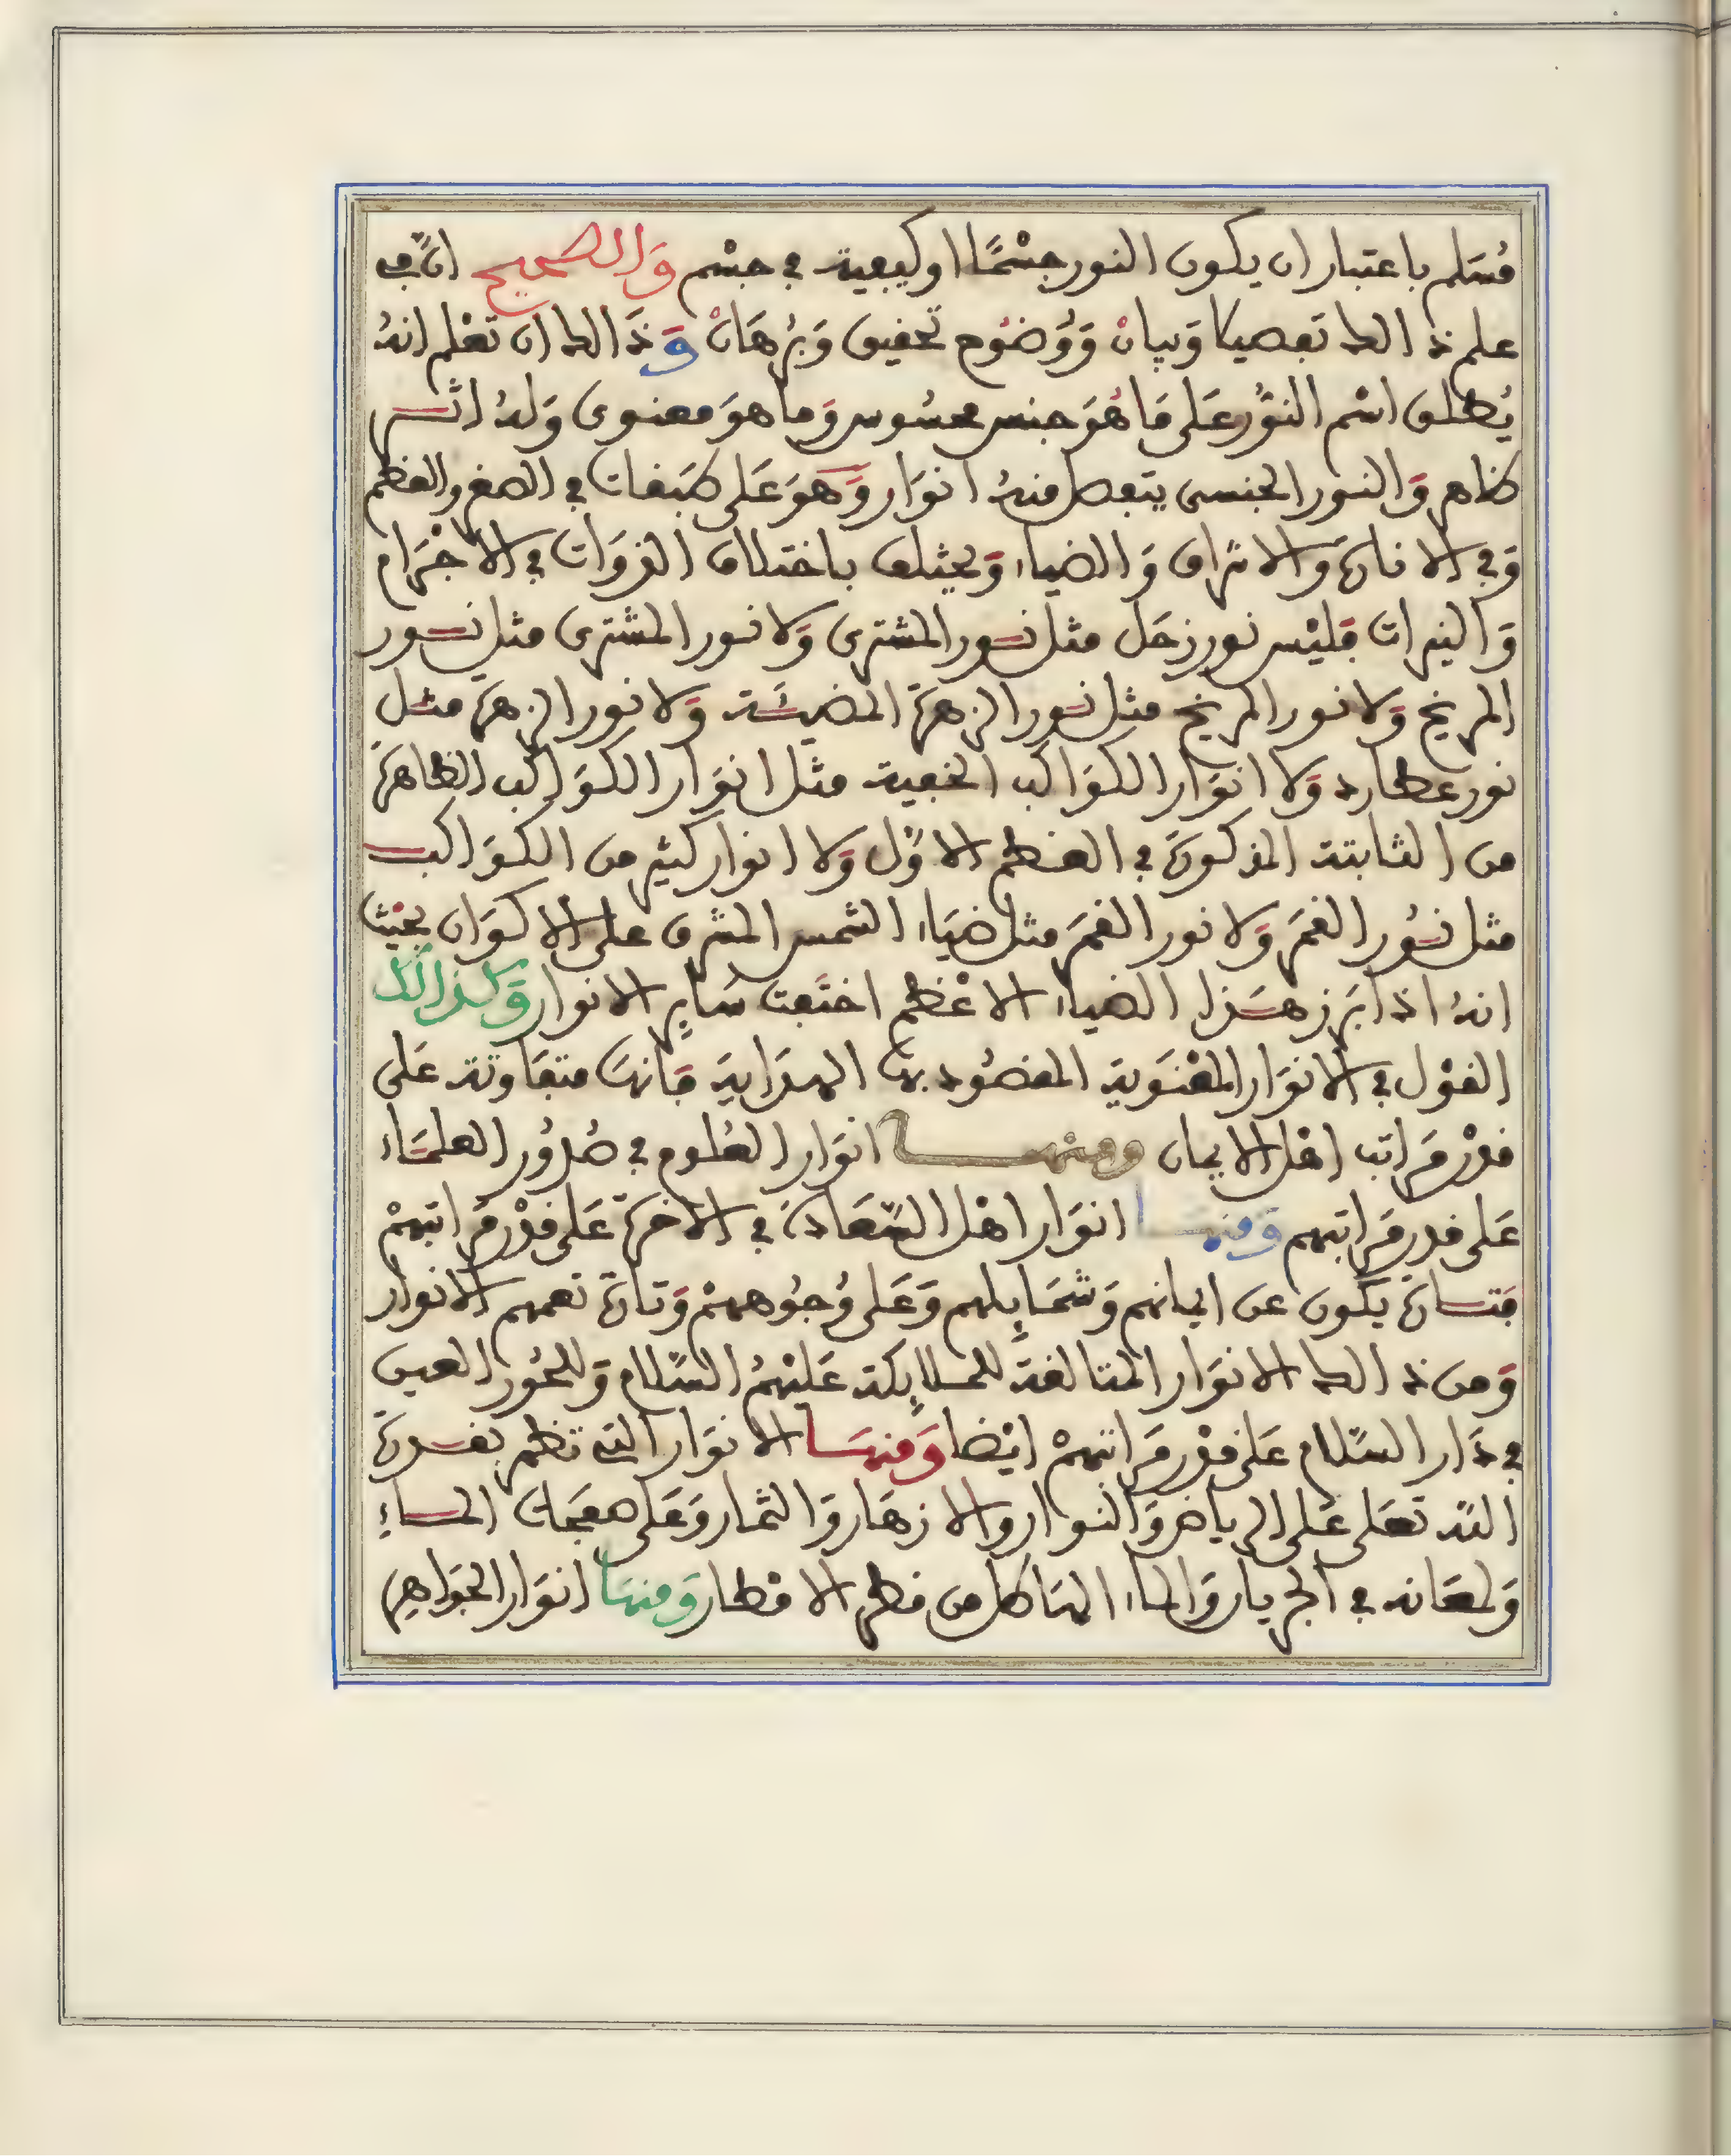 مُسَلم باعتبار ان يكون النور جسْمًا او كيفية في جسْم وَالصحيح انّ في
علم ذالك تفصيلا وَبيانْ وَوُضُوح تحقيق وَبُرهَانْ وَذَالك ان تعْلم انهُ
يُطلق اسْم النوُر عَلى مَا هُوَ جنس محسُوس وَما هوَ معنوى وَلهُ اثر
ظاهر وَالنور الجنسى يتفصل منهُ انوَار وَهوَ عَلى طبَقات في الصغر والعظم
وَفي الانارة وَالاشراق وَالضياء وَيختلف باختلاف الذوَات في الاجْرَام
وَالنيرات فليْس نور زحَل مثل نور المشترى وَلا نور المشترى مثل نور
المريخ وَلا نور المريخ مثل نور الزهرة المضيئَة وَلا نور الزهرة مثل
نور عطارد وَلا انوَار الكوَاكب الخفية مثل انوَار الكوَاكب الظاهرة
من الثابتة المذكورة في العظم الاوَّل وَلا انوار كثير من الكوَاكب
مثل نُور القمَر وَلا نور القمَر مثل ضيَاء الشمس المشرق على الاكوَان بحيْث
انهُ اذا برَز هَذا الضياء الاعْظم اختَفت سَاير الانوار وَكذالك
القوْل في الانوَار المعْنَوية المقصُود بهَا الهدَاية فَانهَا متفَاوتة عَلى
قدْر مَراتب اهْل الايمان ومنْها انوَار العُلوم في صُدوُر العلمَاء
عَلى قدر مَراتبهم وَمنهَا انوَار اهْل السّعَادَة في الاخرَة عَلى قدْر مَراتبهمْ
فتارة يكون عن ايمانهم وَشمَايلهم وَعَلى وُجُوههمْ وَتارَة تعمهم الانوار
وَمن ذالك الانوَار المتالقة للملايكة عَليْهمُ السّلام وَللحُور العين
في دَار السّلام عَلى قدْر مَراتبهمْ ايْضا وَمنهَا الانوَار التي تظهر بقدرة
اللّه تعَلى عَلى الرياض وَالنوار والازهَار وَالثمار وَعَلى صفحَات الماءِ
وَلمعَانه في الجريان وَالماء الهَاطل من قطر الامْطار وَمنهَا انوَار الجوَاهِر